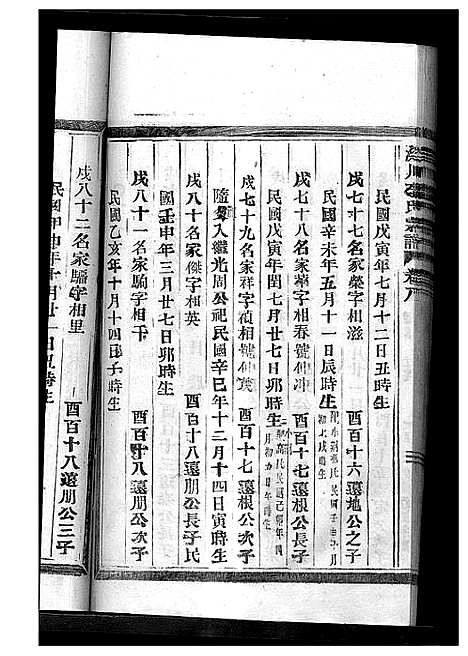 民國戊寅年七月十二日丑時生
戍七十七名家榮字相滋 酉百十六遠地公之子
民國辛未年五月十一日辰時生
戍七十八名家 字相春號仲冲 酉百十七遠根公長子
民國戊寅年閏七月廿七日卯時生
戍七十九名家祥字禎相號仲 酉百十七遠根公次子
隨 入繼光周公祀民國辛巳年十二月十四日寅時生
戍八十名家傑字相英 酉百十八遠朋公長子民
國壬申年三月廿七日卯時生
戍八十一名家駒字相千 酉百十八遠朋公次子
民國乙亥年十月十四日子時生
戍八十二名家驑字相里 酉百十八遠朋公三子
民國甲申年 月廿一日 時生